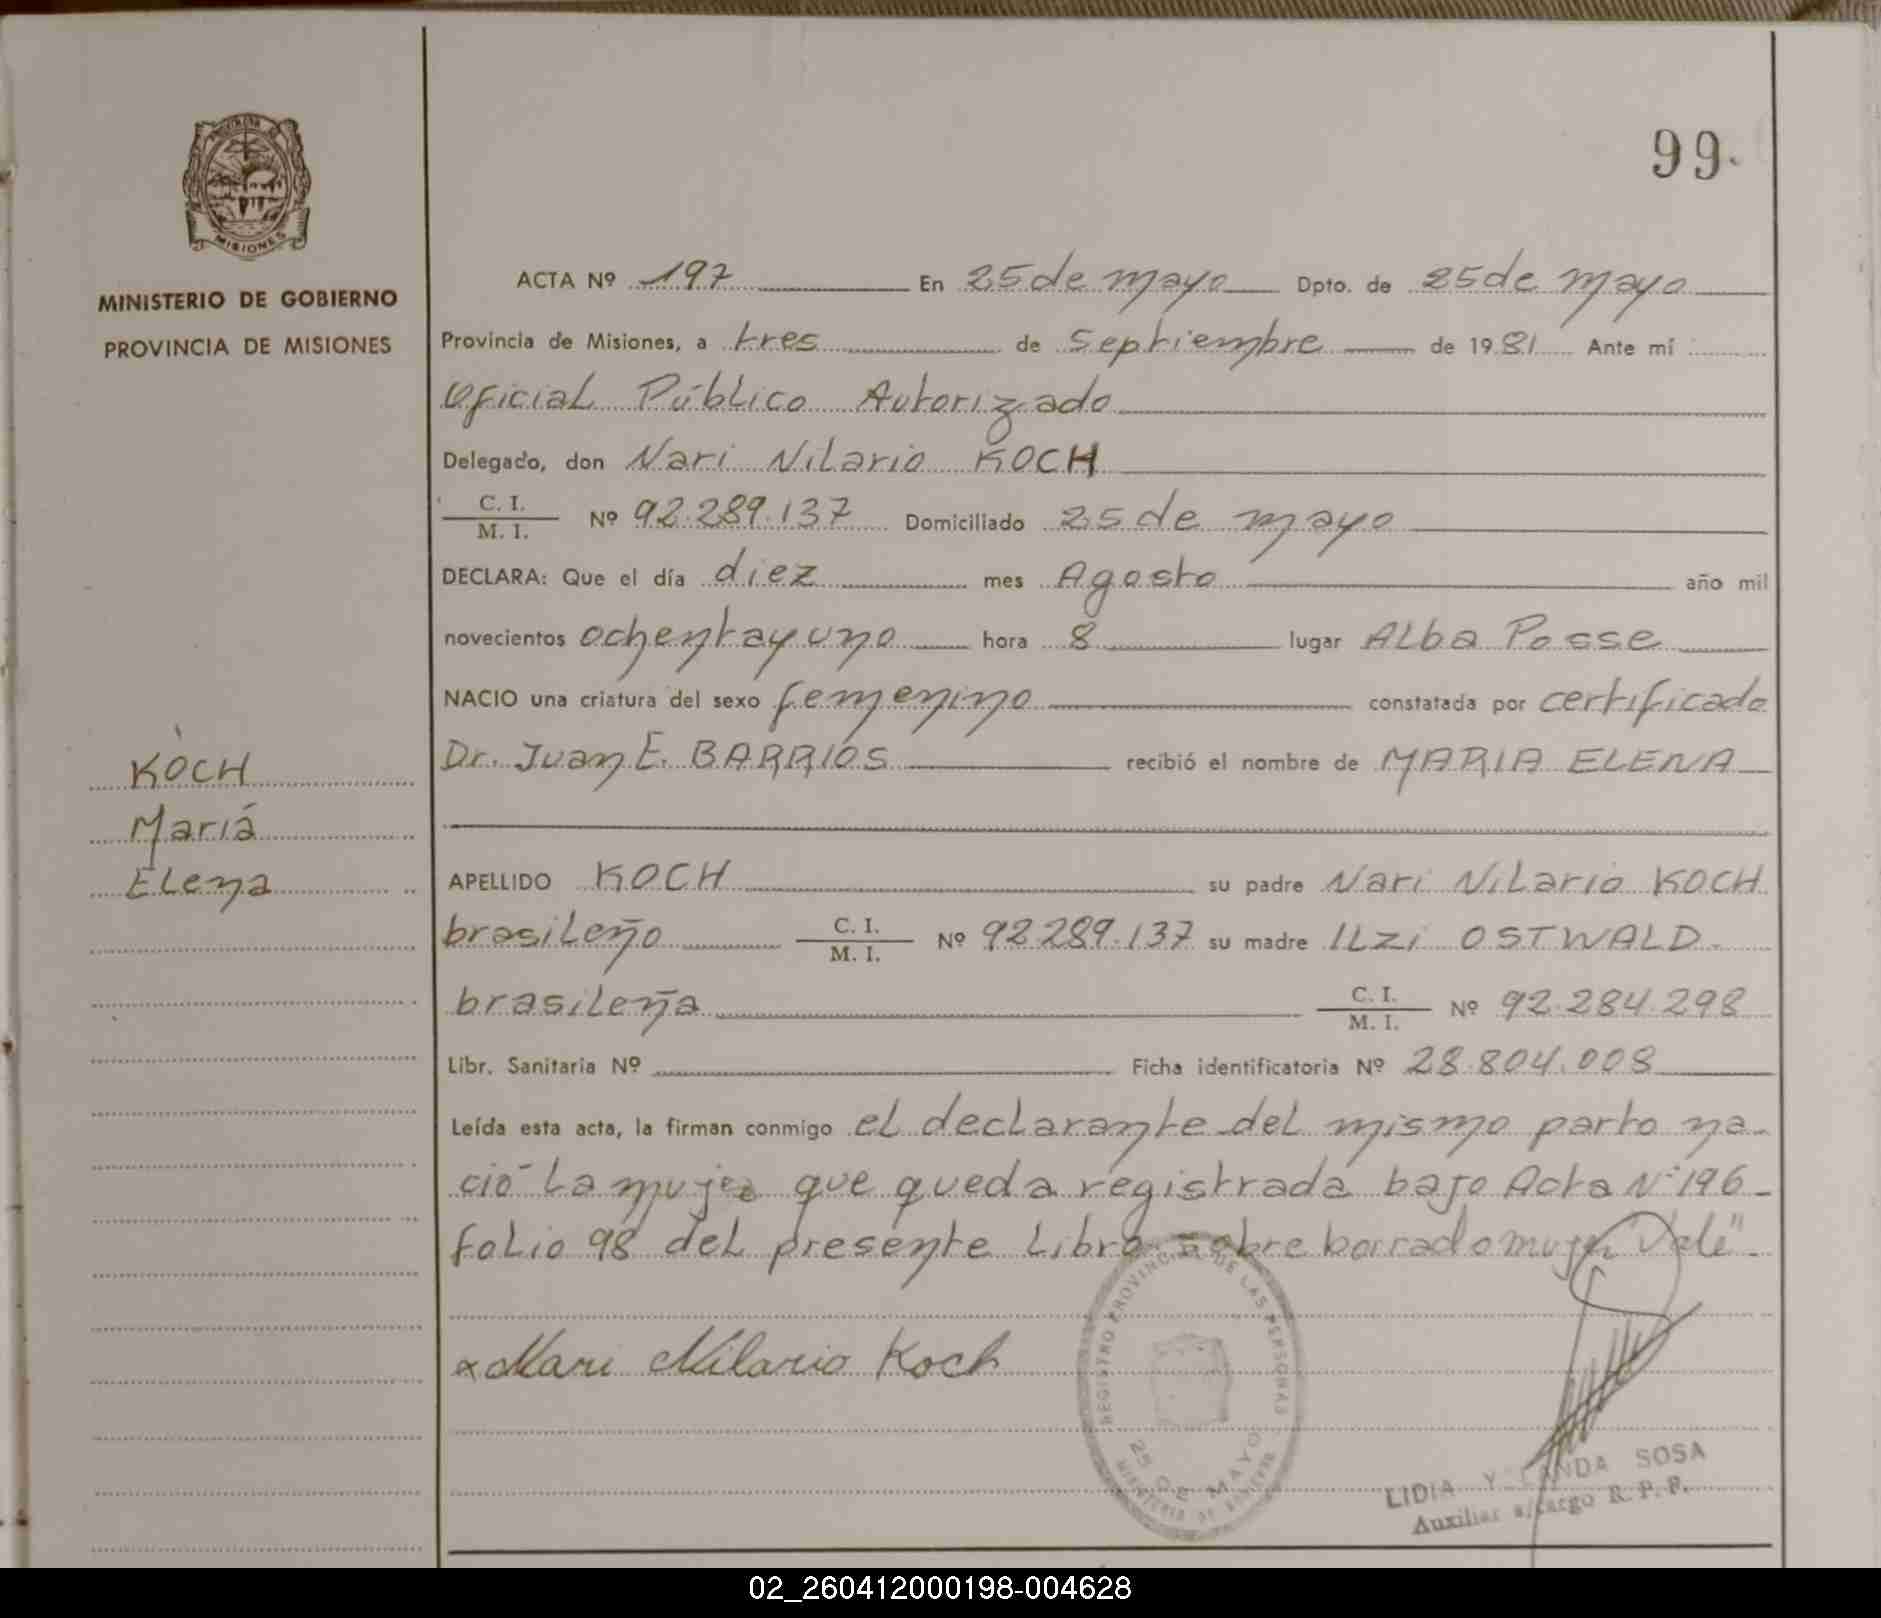 PROVINCIA DE
MISIONES
MINISTERIO DE GOBIERNO
PROVINCIA DE MISIONES
KOCH
Mariá
Elena
99.
ACTA Nº 197 En 25 de mayo Dpto. de 25 de mayo
Provincia de Misiones, a tres de septiembre de 1981 Ante mí
Oficial Público Autorizado
Delegado, don Nari Nilario KOCH
C. I.
M. I. Nº 92.289.137 Domiciliado 25 de mayo
DECLARA: Que el día diez mes Agosto año mil
novecientos ochentayuno hora 8 lugar Alba Posse
NACIO una criatura del sexo femenino constatada por certificado
Dr. Juan E. BARRIOS recibió el nombre de MARIA ELENA
APELLIDO KOCH su padre Nari Nilario KOCH
brasileño C. I.
M. I. Nº 92.289.137 su madre ILZI OSTWALD.
brasileña C. I.
M. I. Nº 92.284.298
Libr. Sanitaria Nº Ficha identificatoria Nº 28.804.008
Leída esta acta, la firman conmigo el declarante del mismo parto na-
ció la mujer que queda registrada bajo Acta Nº 196-
folio 98 del presente Libro. sobre borrado mujer "Vale".
x Nari Nilario Koch
REGISTRO PROVINCIAL DE LAS PERSONAS
25 DE MAYO
MINISTERIO DE GOBIERNO
LIDIA YOLANDA SOSA
Auxiliar a/cargo R. P. P.
02_260412000198-004628